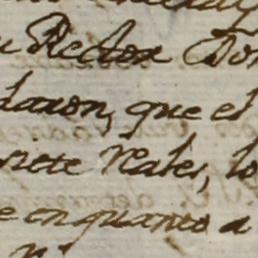 Rector Don
daron, que el
siete reales, lo
e en quanto a